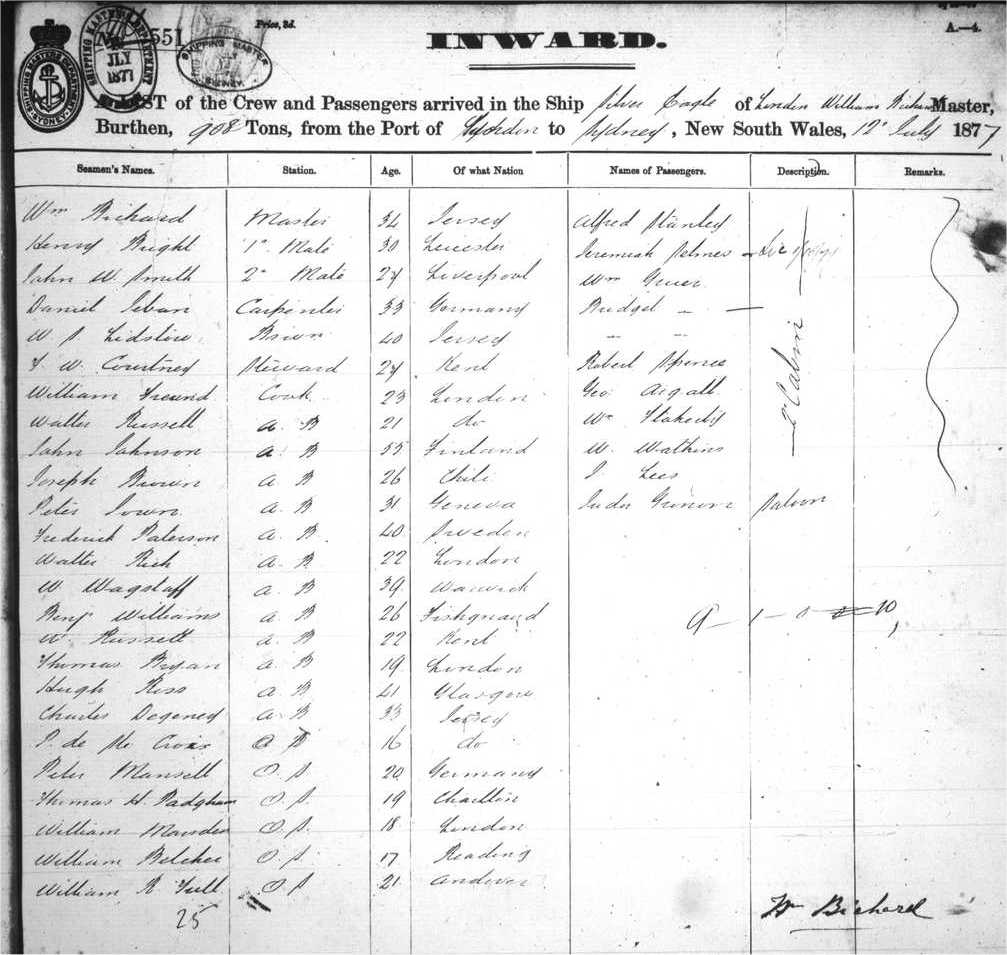 A.—4.
551
Price, 3d.
SHIPPING MASTERS DEPARTMENT SYDNEY
SHIPPING MASTERS DEPARTMENT
JLY
1877
SHIPPING MASTER
SYDNEY
INWARD.
A LIST of the Crew and Passengers arrived in the Ship Silver Eagle of London William Master,
Burthen, 908 Tons, from the Port of London to Sydney, New South Wales, 12 July 1877
Seamen's Names. Station. Age. Of what Nation Names of Passengers. Description. Remarks.
Wm Bichard Master 34 Jersey Alfred Stanley
Henry Bright 1st Mate 30 Leicester Jeremiah
John W. Smith 2d Mate 24 Liverpool Wm
Daniel Carpenter 33 Germany Bridget
W S Bosun 40 Jersey
W. Courtney Steward 24 Kent Robert Spence
William Freund Cook 23 London Geo. Argall
Walter Russell A B 21 do Wm
John Johnson A B 55 Finland W. Watkins
2 Cabin
Joseph Brown A B 26 Chili J Lees
Peter A. B 31 Geneva Saloon
Frederick Paterson A. B 40 Sweden
Walter Rich A B 22 London
W Wagstaff A. B 39 Warwick
Benj Williams A B 26 Fishguard 9 – 1 – 0 = 10,
W. Russell A. B 22 Kent
Thomas Bryan A B 19 London
Hugh Ross A B 41 Glasgow
Charles A. B 33 Jersey
P. de Ste Croix 16 do
Peter Mansell O. S. 20 Germany
Thomas H. Padgham O S. 19 Charlton
William O S. 18 London
William Belcher O S. 17 Reading
William R. Tull O S 21 Andover
25
W Bichard